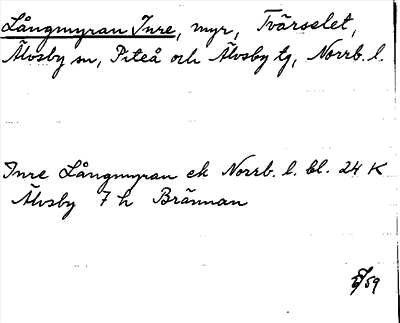 Långmyran Inre, myr, Tvärselet,
Älvsby sn, Piteå och Älvsby tg, Norrb. l.
Inre Långmyran ek Norrb. l. bl. 24 K
Älvsby 7 h Brännan
/59